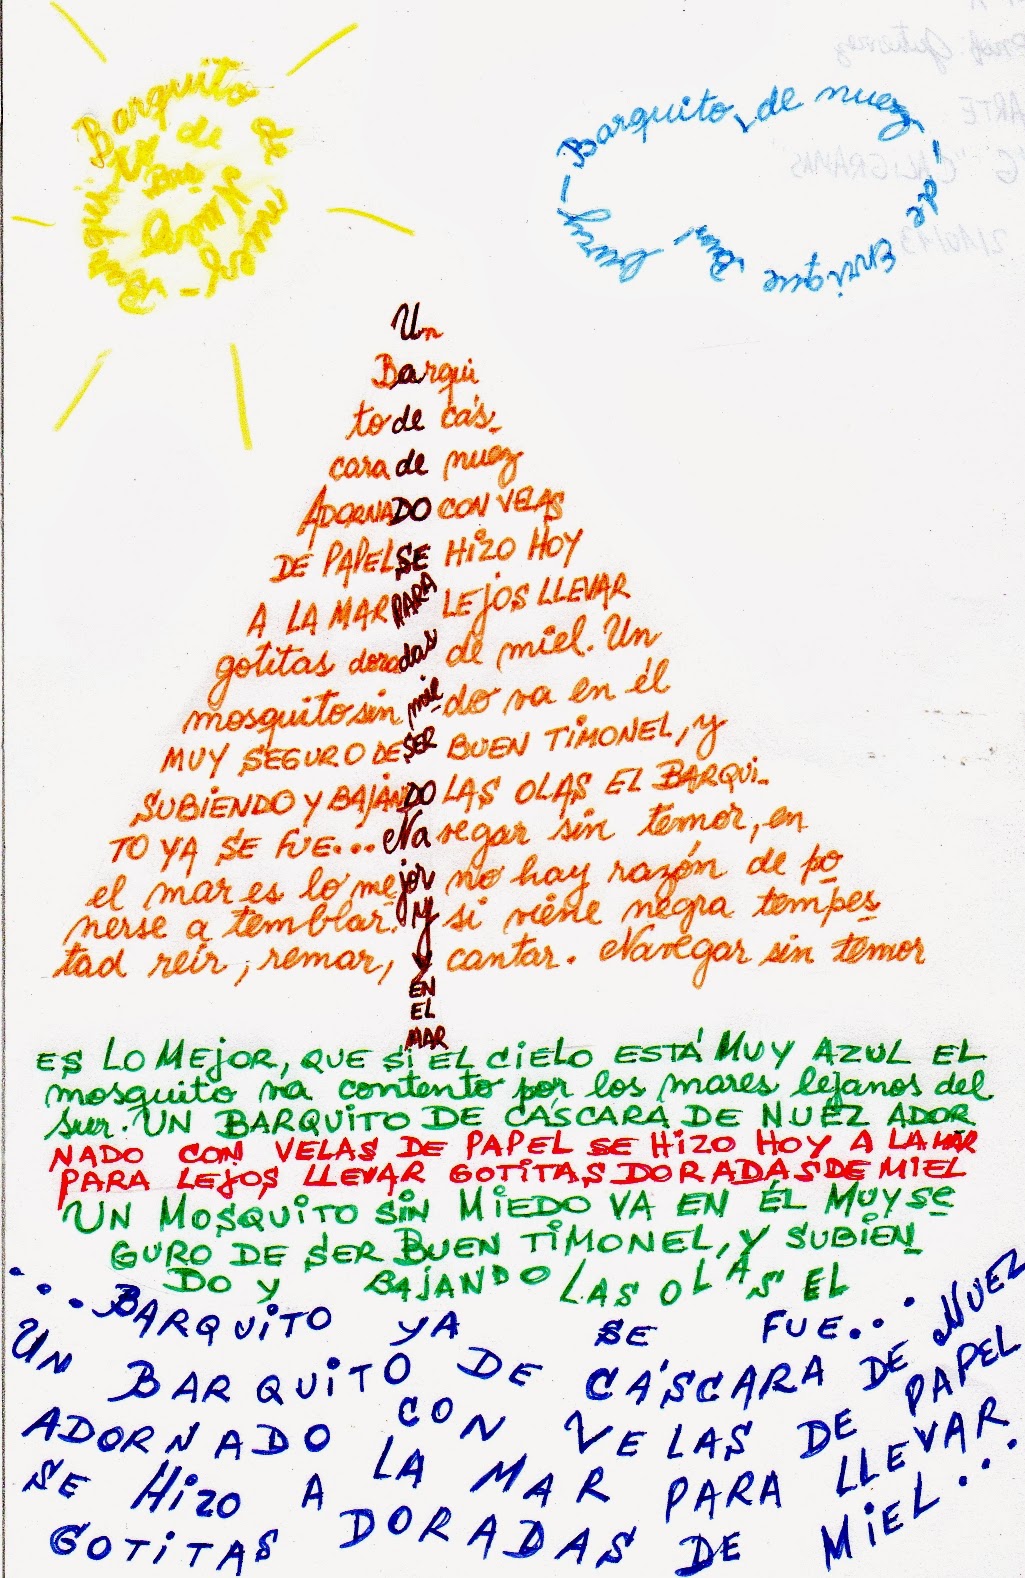 Barquito
de
Barquito, de nuez
de
Enrique
Un
Barqui
to de cás-
cara de nuez
ADORNADO CON VELAS
DE PAPEL SE HIZO HOY
A LA MAR PARA LEJOS LLEVAR
gotitas doradas de miel. Un
mosquito sin miedo va en él
MUY SEGURO DE SER BUEN TIMONEL, y
SUBIENDO Y BAJANDO LAS OLAS EL BARQUI-
TO YA SE FUE... Navegar sin temor, en
el mar es lo mejor no hay razón de po
nerse a temblar. Y si viene negra tempes
tad reír, remar, y cantar. Navegar sin temor
EN
EL
MAR
ES LO MEJOR, QUE SI EL CIELO ESTÁ MUY AZUL EL
mosquito va contento por los mares lejanos del
sur. UN BARQUITO DE CÁSCARA DE NUEZ ADOR
NADO CON VELAS DE PAPEL SE HIZO HOY A LA MAR
PARA LEJOS LLEVAR GOTITAS DORADAS DE MIEL
UN MOSQUITO SIN MIEDO VA EN ÉL MUY SE
GURO DE SER BUEN TIMONEL, Y SUBIEN
DO Y BAJANDO LAS OLAS EL
...BARQUITO YA SE FUE...
UN BARQUITO DE CÁSCARA DE NUEZ
ADORNADO CON VELAS DE PAPEL
SE HIZO A LA MAR PARA LLEVAR
GOTITAS DORADAS DE MIEL...